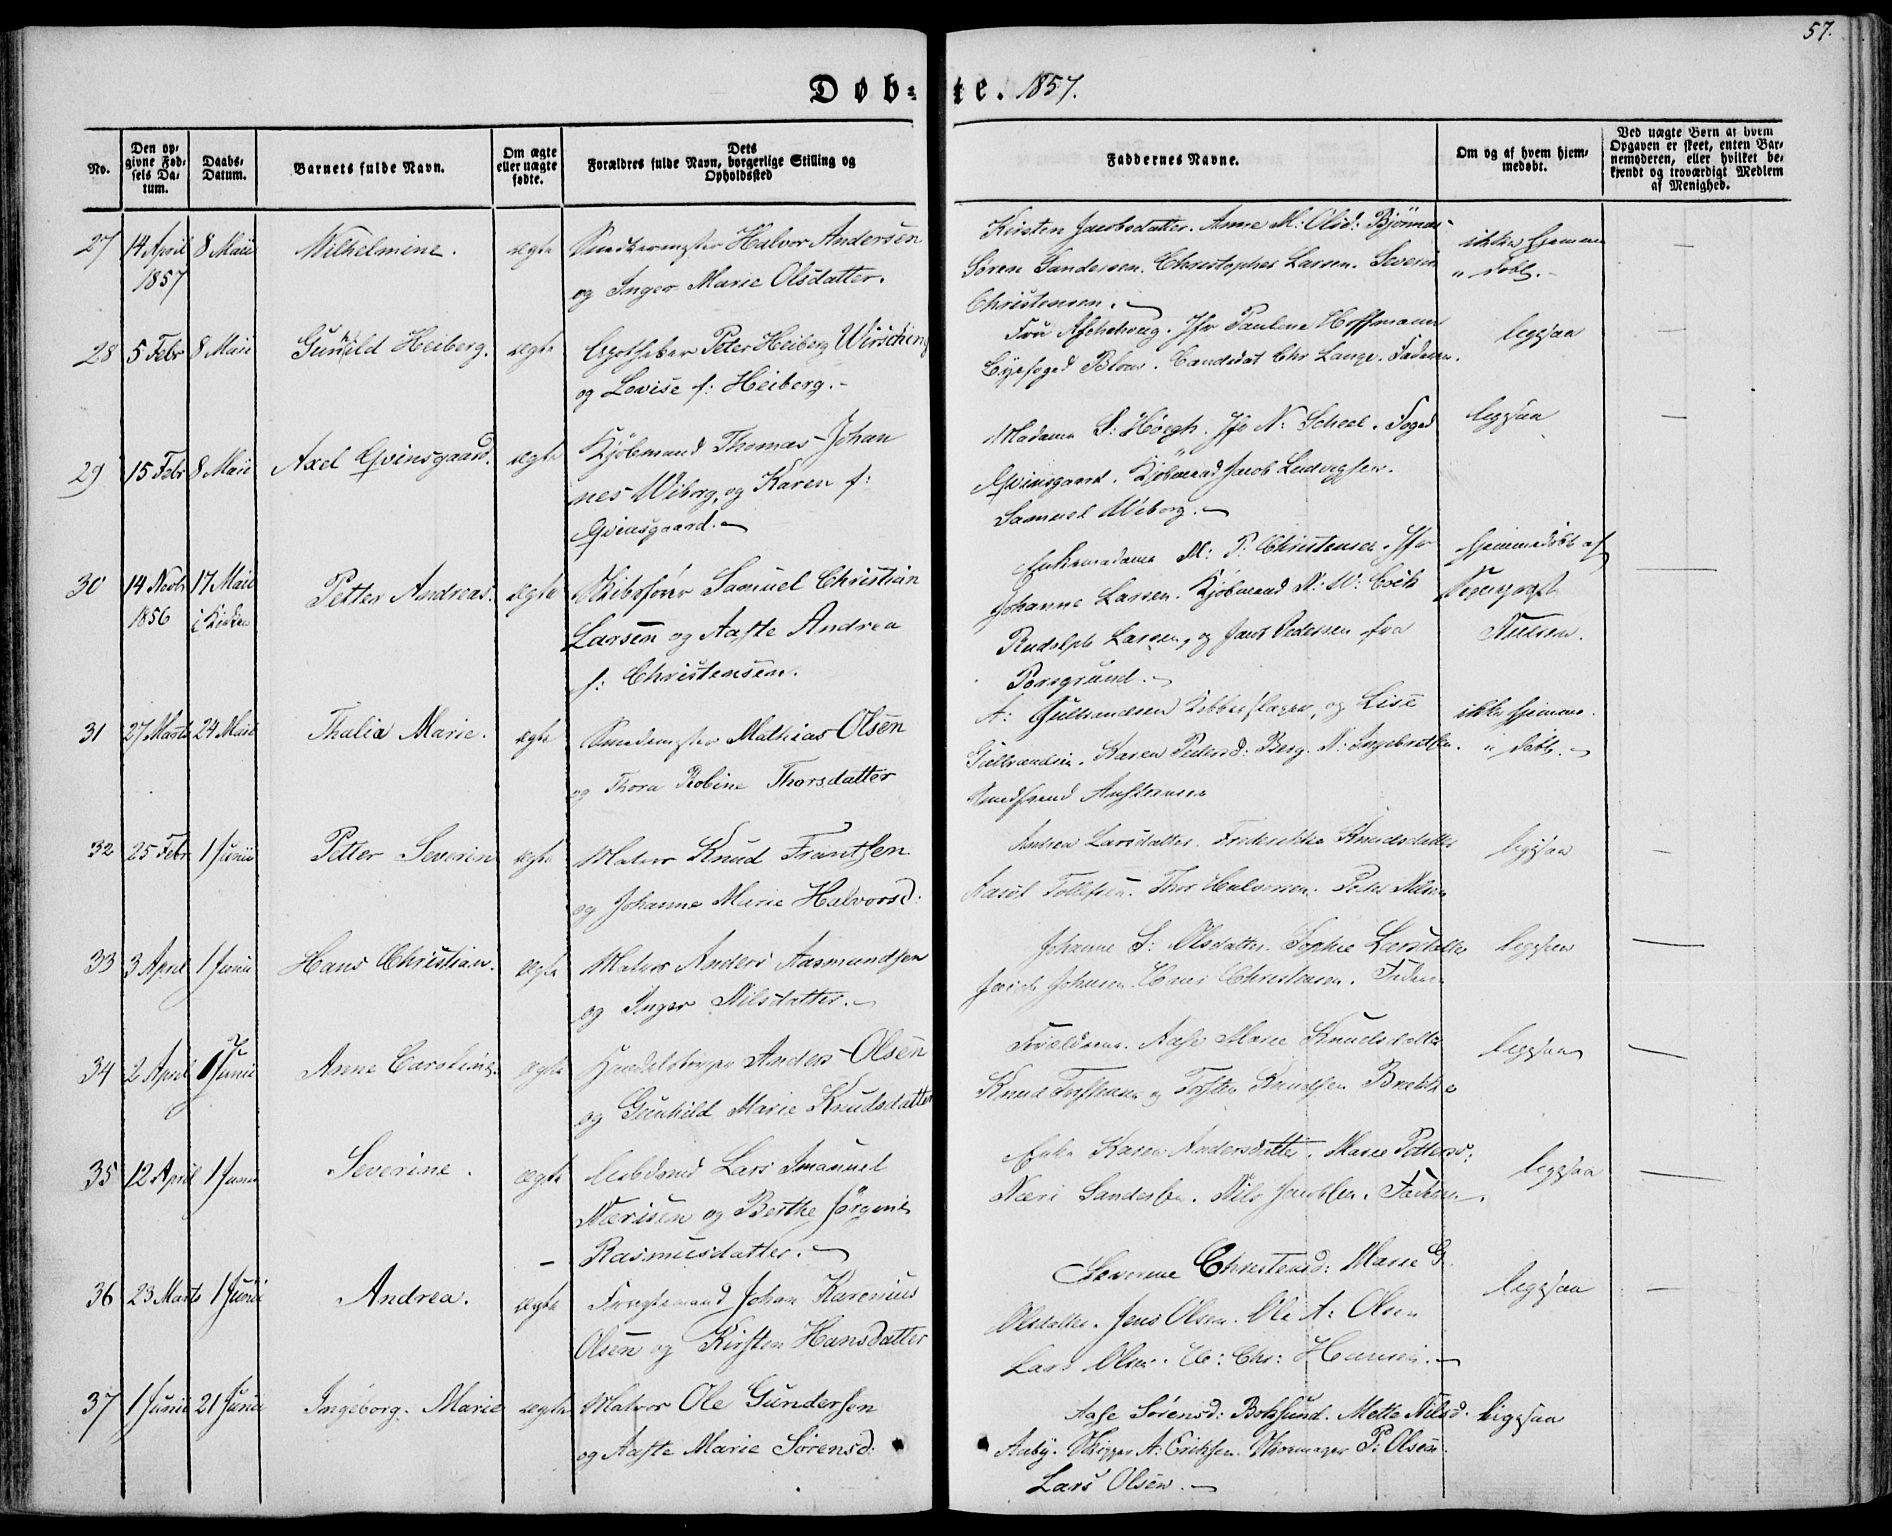 57.
Døb=te. 1857.
No.
Den op=
givne Fød=
sels Da=
tum.
Daabs=
Datum.
Barnets fulde Navn.
Om ægte
eller uægte
fødte.
Dets
Forældres fulde Navn, borgerlige Stilling og
Opholdssted
Faddernes Navne.
Om og af hvem hjem=
medøbt.
Ved uægte Børn af hvem
Opgaven er skeet, enten Bar=
nemoderen, eller hvilket be=
kjendt og troværdigt Medlem
af Menighed.
27 14 April 8 Maii Wilhelmine. ægte Halvor Andersen
1857 og Inger Marie Olsdatter.
Kirsten Jacobsdatter. Anne M: Olsd:
Søren Sandersen. Christopher Larsen. Severin
Christensen.
ikke hjemme
" døbt. —
28 5 Febr 8 Maii Gunild Heiberg. ægte Apotheker Peter Heiberg Wirsching
og Lovise f: Heiberg. -
Fru Jfr Pauline Hoffmann
Byefoged Blom. Candidat Chr Lange. Faderen.
ligesaa —
29 15 Febr 8 Maii Axel Qvinsgaard. ægte Kjøbmand Thomas Johan
nes Wiborg, og Karen f:
Qvinsgaard. —
Madame S: Høegh. Jfr N: Scheel. Foged
Qvinsgaard. Kjøbmand Jacob Ludvigsen.
Samuel Wiborg. —
ligesaa —
30 14 Novbr 17 Maii Petter Andreas. ægte Skibsfører Samuel Christian
1856 i Kirken Larsen og Aaste Andrea
f: Christensen.
Enkemadame M: P: Christensen. Jfr
Johanne Larsen. Kjøbmand N: W:
Rudolph Larsen, og Jens Pedersen fra
Porsgrund. —
hjemmedøbt af
Sogneprest
Nielsen.
31 27 Marts 24 Maii Thalia Marie. ægte Smedemester Mathias Olsen
og Thora Robine Thorsdatter
A: Gulbrandsen Kobberslager, og Lise
Gulbrandsen. Karen Pedersd: Berg. N: Ingebretsen.
ikke hjemme
" døbt. —
32 25 Febr 1 Junii Petter Severin ægte Matros Knud Frantsen
og Johanne Marie Halvorsd:
Andrea Larsdatter. Frederikke Knudsdatter
Tollefsen. Thor Halvorsen. Peter Nilsen
ligesaa —
33 3 April 1 Junii Hans Christian. ægte Matros Anders Aasmundsen
og Inger Nilsdatter. —
Johanne S: Olsdatter. Sophie Larsdatter
Jacob Johnsen. Hans Christensen. Faderen
ligesaa —
34 2 April 1 Junii Anne Caroline. ægte Anders Olsen
og Gunhild Marie Knudsdatter
Forældrene. Aase Marie Knudsdatter
Knud Torstensen og Torsten Knudsen Brække
ligesaa —
35 12 April 1 Junii Severine. ægte Arbdsmd Lars Imanuel
Nærisen og Berthe Jørgine
Rasmusdatter. —
Enke Karen Andersdatter. Maren Pettersd:
Næri Sandersen. Nils Jacobsen. Faderen.
ligesaa —
36 23 Marts 1 Junii Andrea. ægte Johan Karenius
Olsen og Kirsten Hansdatter
Severine Christensd: Marie G.
Olsdatter. Jens Olsen. Ole A: Olsen
Lars Olsen. H: Chr: Hansen. —
ligesaa —
37 1 Junii 21 Junii Ingeborg. Marie ægte Matros Ole Gundersen
og Aaste Marie Sørensd:
Aase Sørensd: Botssund. Mette Nilsd.
Aaby. Skipper A: Eriksen. Skomager P: Olsen.
Lars Olsen. —
ligesaa